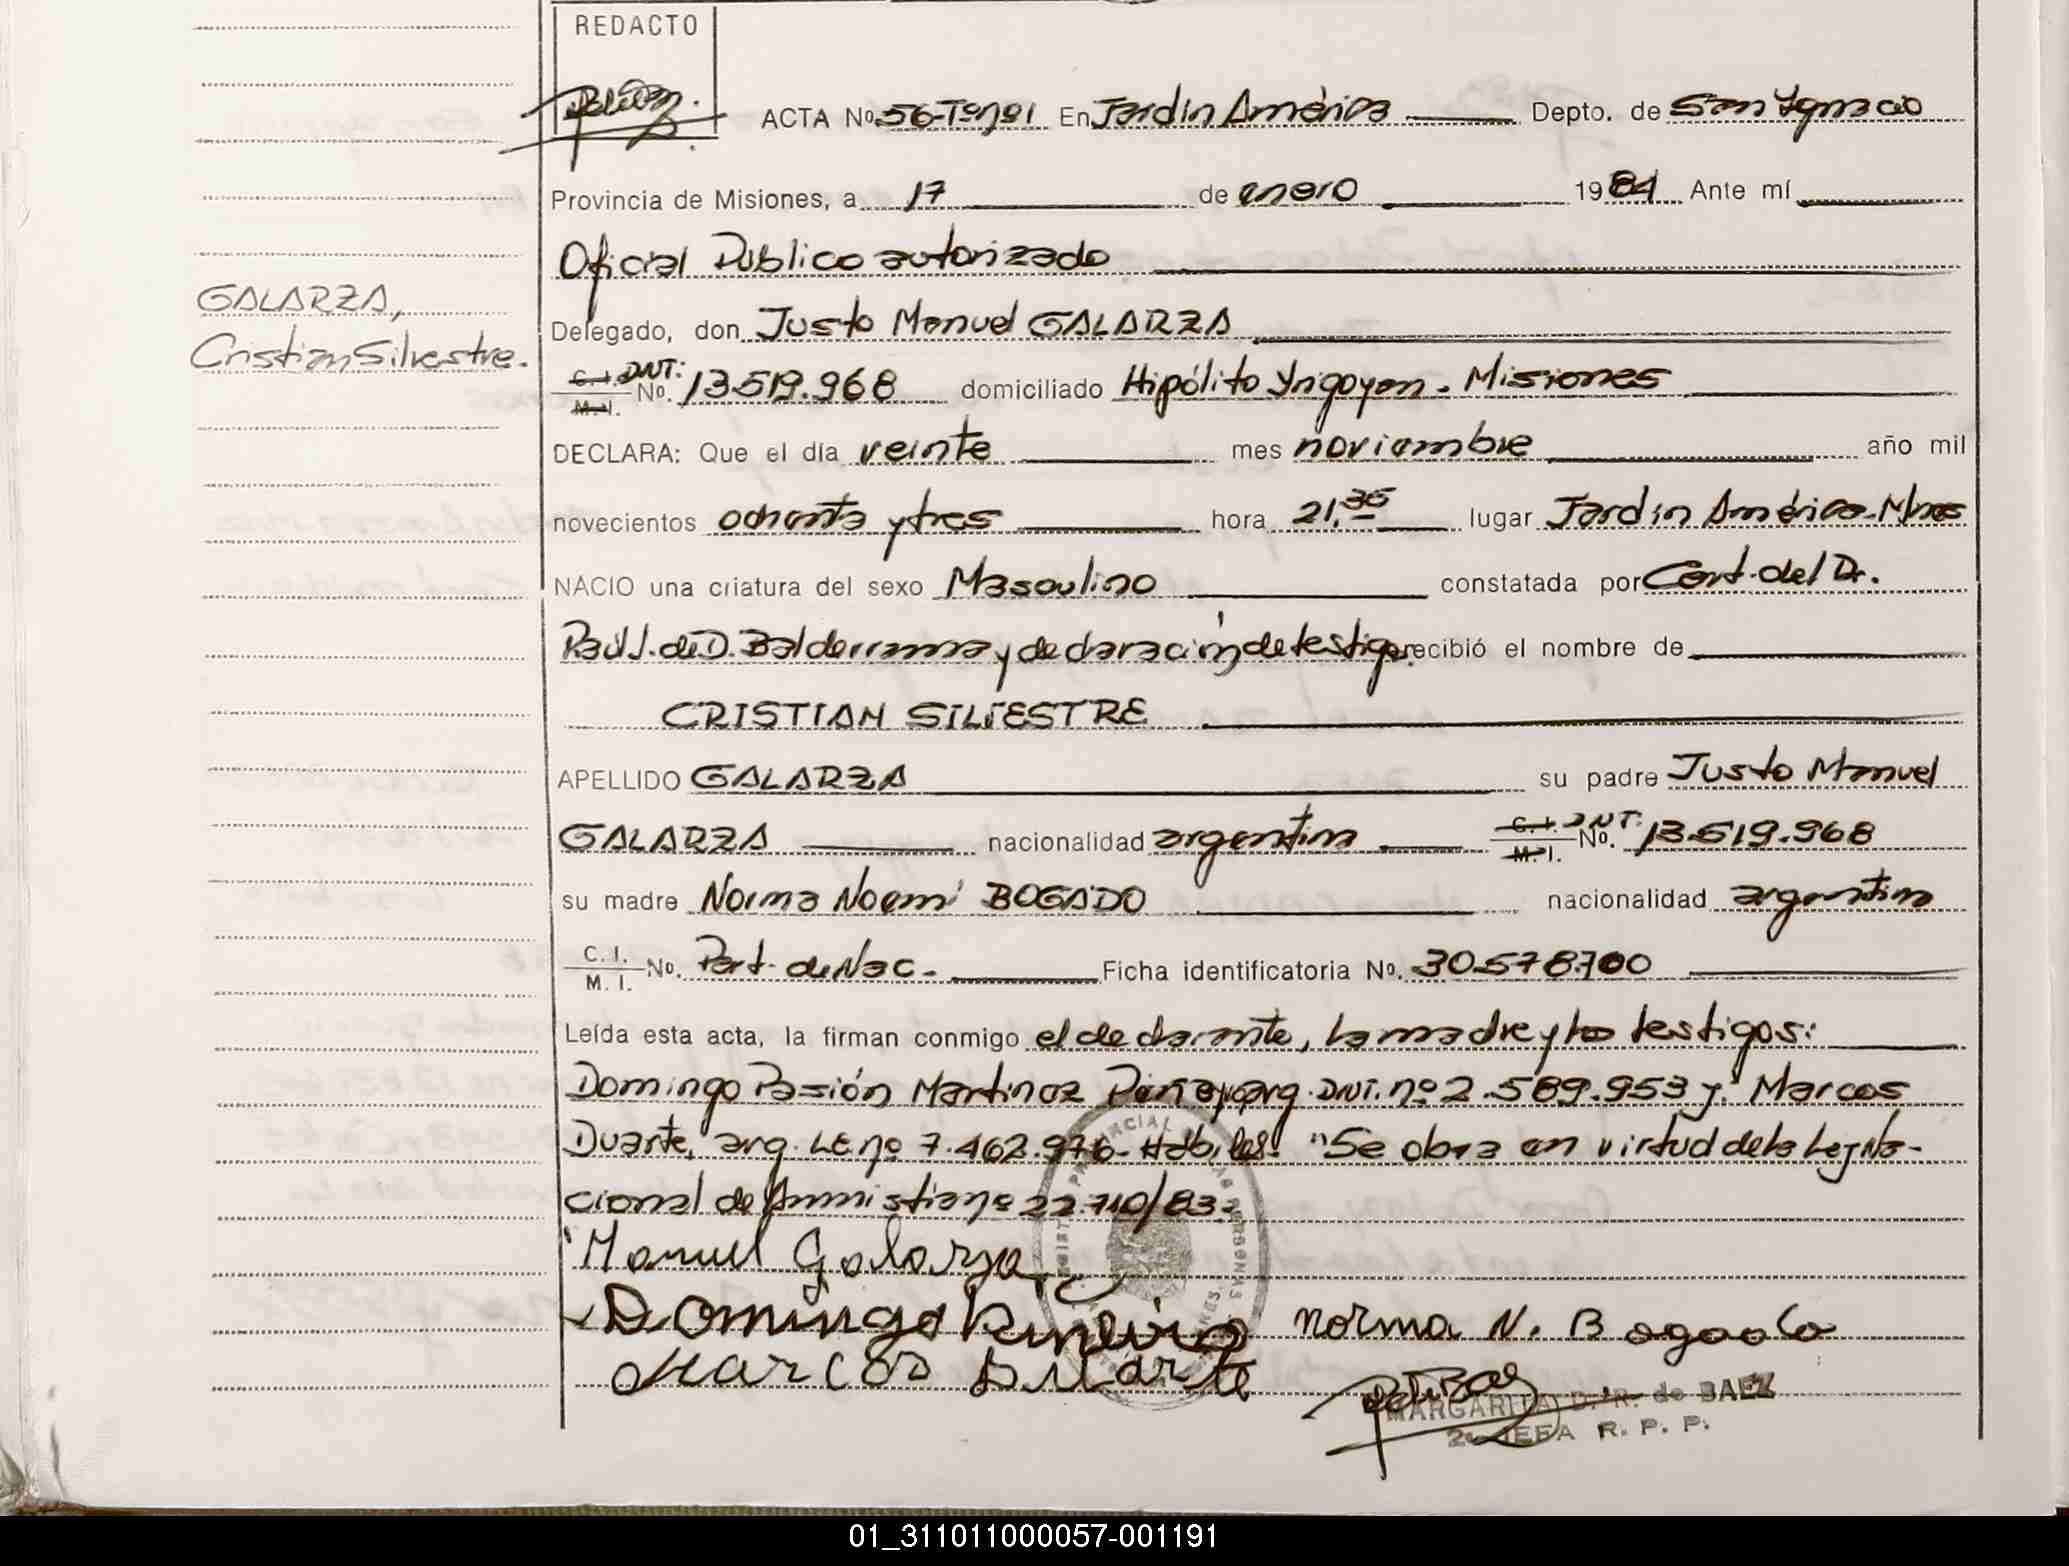 REDACTO
ACTA Nº 56-Tº nº 1 En Jardín América Depto. de San Ignacio
Provincia de Misiones, a 17 de enero 1984 Ante mí
Oficial Público autorizado
GALARZA,
Delegado, don Justo Manuel GALARZA
Cristian Silvestre.
C.I. M.I. DNI: No. 13.519.968 domiciliado Hipólito Yrigoyen - Misiones
DECLARA: Que el día veinte mes noviembre año mil
novecientos ochenta y tres hora 21,35 lugar Jardín América-Mnes
NACIO una criatura del sexo Masculino constatada por Cert. del Dr.
Raúl J. de D. Balderrama y declaración de testigos recibió el nombre de
CRISTIAN SILVESTRE
APELLIDO GALARZA su padre Justo Manuel
GALARZA nacionalidad argentina C.I. M.I. DNI: No. 13.519.968
su madre Norma Noemí BOGADO nacionalidad argentina
C.I. M.I. No. Part. de Nac. - Ficha identificatoria No. 30.578.700
Leída esta acta, la firman conmigo el declarante, la madre y los testigos:
Domingo Pasión Martinez arg. DNI. nº 2.589.953 y: Marcos
Duarte, arg. LE nº 7.462.976- Hábiles. "Se obra en virtud de la Ley Na-
cional de Amnistia nº 22.710/83.
Manuel Galarza
Domingo norma N. Bogado
Marcos Duarte
MARGARITA D. R. de BAEZ
2º JEFA R. P. P.
01_311011000057-001191